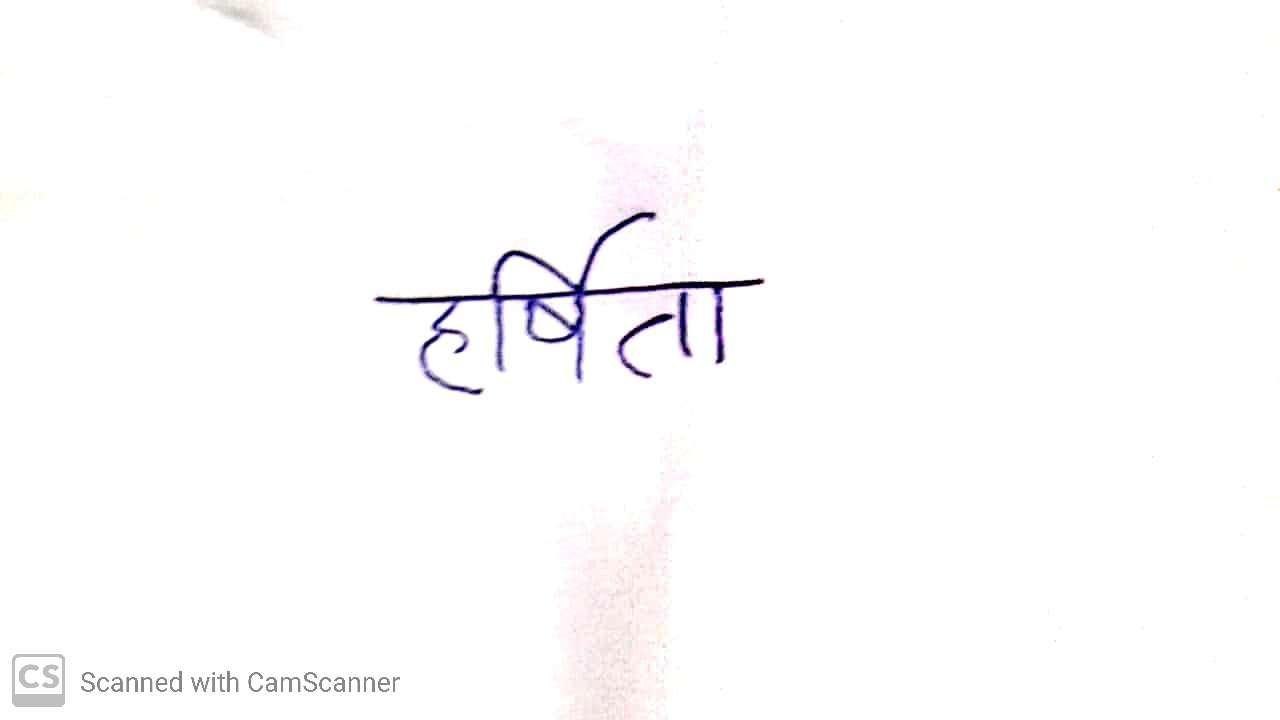 हर्षिता
CS Scanned with CamScanner